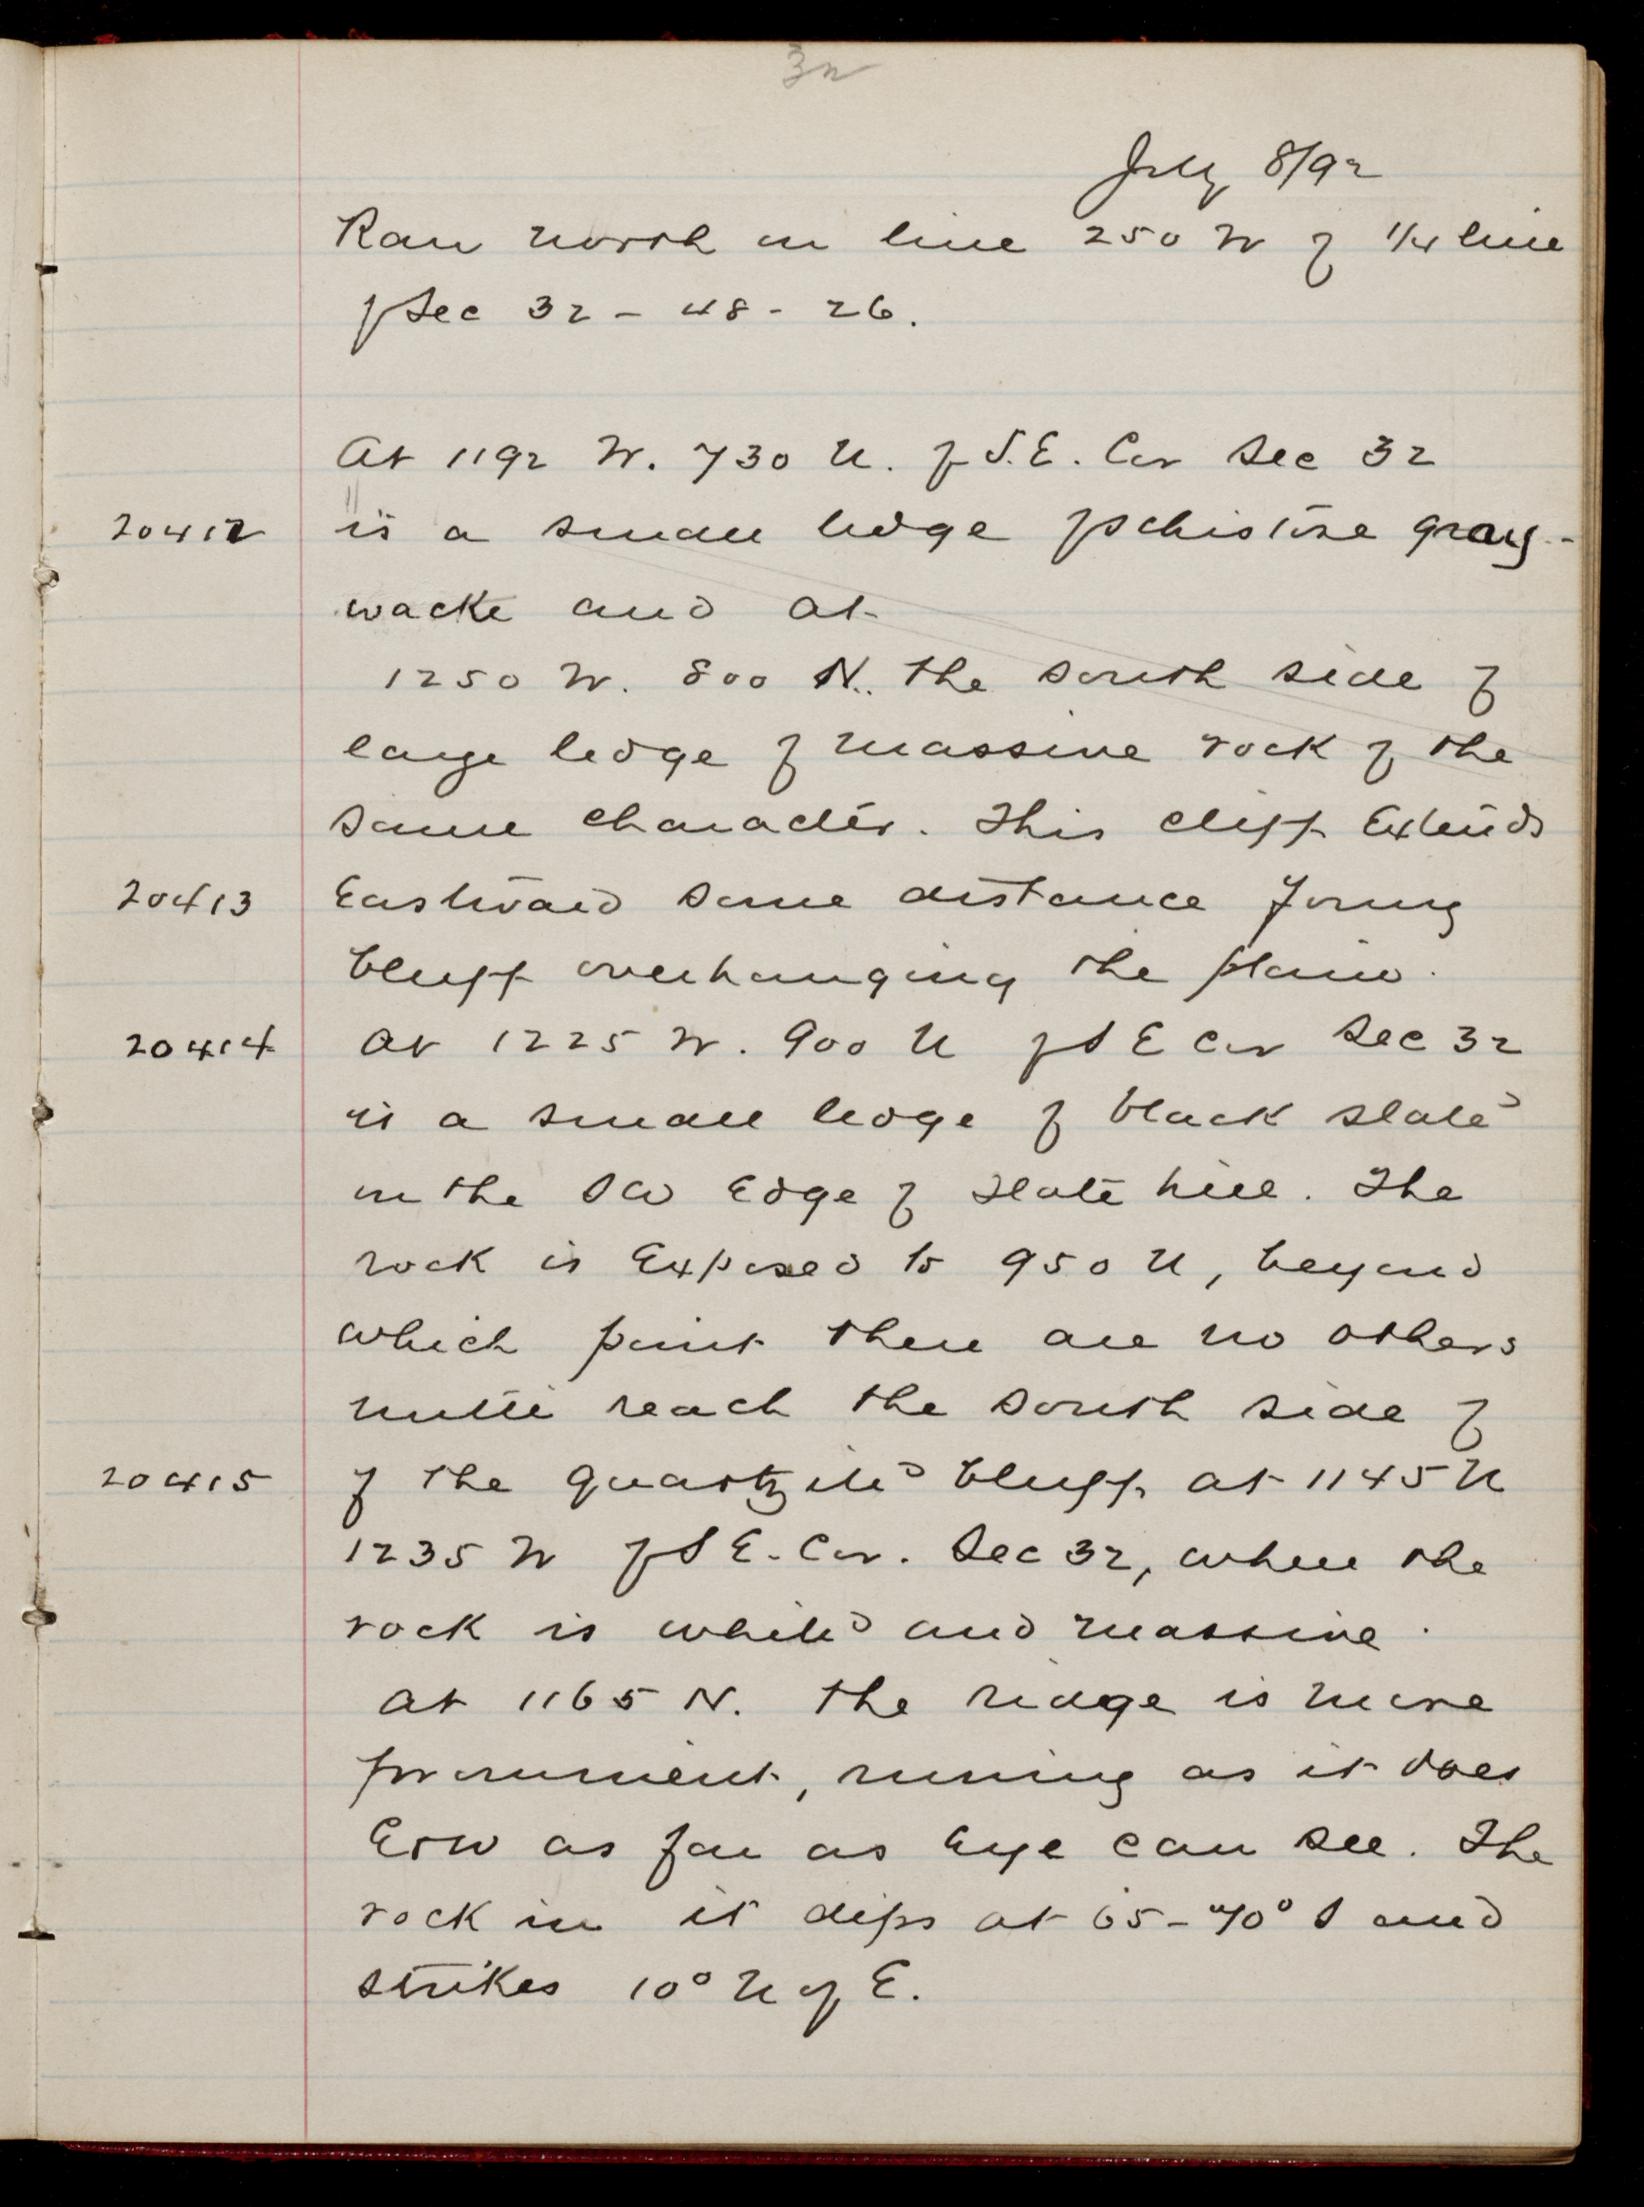 32
July 8/92
Ran north on line 250 W of 1/4 line
of Sec 32 - 48 - 26.
At 1192 W. 730 N. of S.E. Cor Sec 32
20412 is a small ledge of schistose gray-
wacke and at
1250 W. 800 N. the south side of
large ledge of massive rock of the
same character. This cliff Extends
20413 Eastward some distance forming
bluff overhanging the plain.
20414 At 1225 W. 900 N of S E Cor Sec 32
is a small ledge of black slate
on the SW Edge of slate hill. The
rock is Exposed to 950 N, beyond
which point there are no others
until reach the south side of
20415 of the quartzite bluff at 1145 N
1235 W of S E. Cor. Sec 32, where the
rock is white and massive.
at 1165 N. the ridge is more
prominent, running as it does
E & W as far as Eye can see. The
rock in it dips at 65-70° S and
strikes 10° N of E.